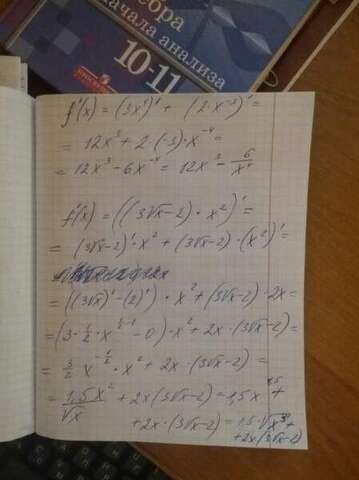 бра
начала анализа
10-11
f'(x) = (3x⁴)' + (2x⁻³)' =
= 12x³ + 2·(-3)·x⁻⁴ =
= 12x³ - 6x⁻⁴ = 12x³ - 6/x⁴
f'(x) = ((3√x-2)·x²)' =
= (3√x-2)'·x² + (3√x-2)·(x²)' =
= ((3√x)' - (2)')·x² + (3√x-2)·2x =
= (3·1/2·x^(1/2-1) - 0)·x² + 2x·(3√x-2) =
= 3/2 x^(-1/2)·x² + 2x·(3√x-2) =
= 1,5x²/√x + 2x(3√x-2) = 1,5x^1,5 +
+2x·(3√x-2) = 1,5·√x³ +
+2x(3√x-2)